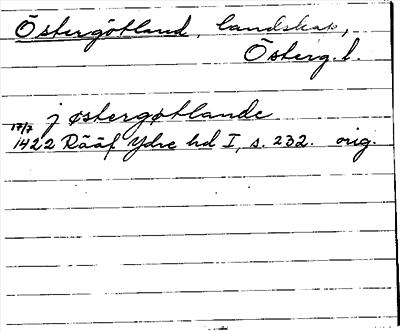 Östergötland, landskap,
Österg.l.
j østergøtlande
17/7
1422 Rääf Ydre hd I, s. 232. orig.